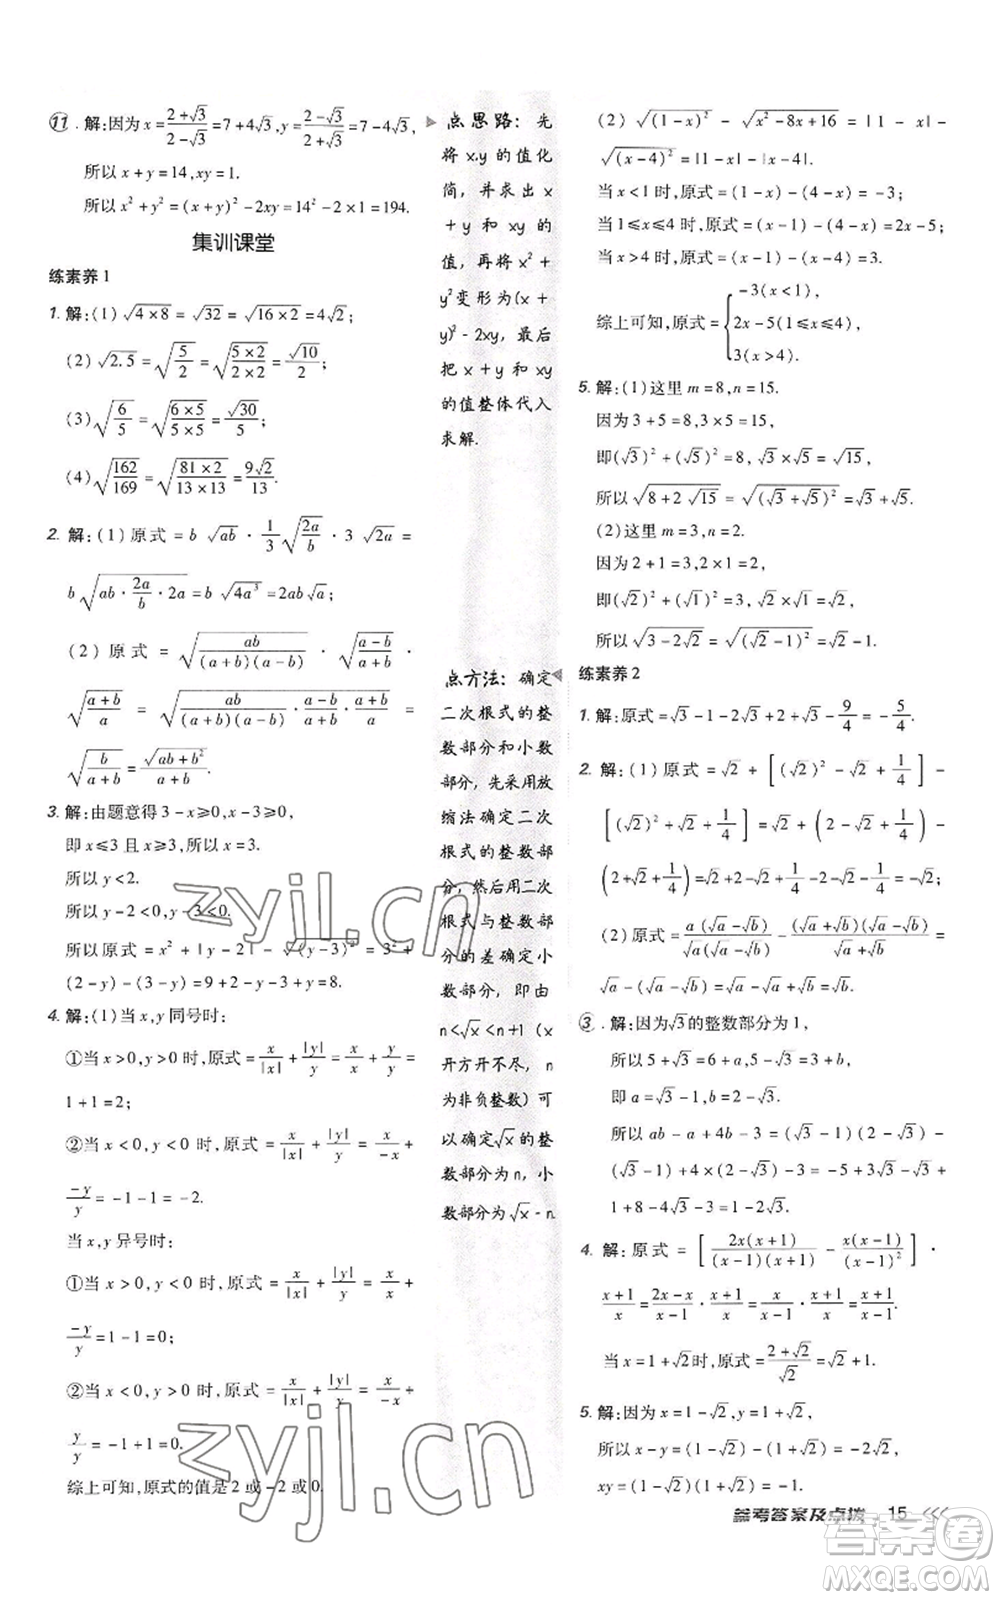 ⑪. 解:因为 x=(2+√3)/(2-√3)=7+4√3,y=(2-√3)/(2+√3)=7-4√3,
所以 x+y=14,xy=1.
所以 x²+y²=(x+y)²-2xy=14²-2×1=194.
集训课堂
练素养1
1. 解:(1)√(4×8)=√32=√(16×2)=4√2;
(2)√2.5=√(5/2)=√((5×2)/(2×2))=√10/2;
(3)√(6/5)=√((6×5)/(5×5))=√30/5;
(4)√(162/169)=√((81×2)/(13×13))=9√2/13.
2. 解:(1)原式=b√(ab)·(1/3)√(2a/b)·3√(2a)=
b√(ab·(2a/b)·2a)=b√(4a³)=2ab√a;
(2)原式=√(ab/((a+b)(a-b)))·√((a-b)/a)·
√((a+b)/a)=√(ab/((a+b)(a-b))·(a-b)/a·(a+b)/a)=
√(b/(a+b))=√(ab+b²)/(a+b).
3. 解:由题意得3-x≥0,x-3≥0,
即x≤3且x≥3,所以x=3.
所以y<2.
所以y-2<0,y-3<0.
所以原式=x²+|y-2|-√((y-3)²)=3²+
(2-y)-(3-y)=9+2-y-3+y=8.
4. 解:(1)当x,y同号时:
①当x>0,y>0时,原式=x/|x|+|y|/y=x/x+y/y=
1+1=2;
②当x<0,y<0时,原式=x/|x|+|y|/y=x/-x+
-y/y=-1-1=-2.
当x,y异号时:
①当x>0,y<0时,原式=x/|x|+|y|/y=x/x+
-y/y=1-1=0;
②当x<0,y>0时,原式=x/|x|+|y|/y=x/-x+
y/y=-1+1=0.
综上可知,原式的值是2或-2或0.
点思路:先
将x,y的值化
简,并求出x
+y和xy的
值,再将x²+
y²变形为(x+
y)²-2xy,最后
把x+y和xy
的值整体代入
求解.
点方法:确定
二次根式的整
数部分和小数
部分,先采用放
缩法确定二次
根式的整数部
分,然后用二次
根式与整数部
分的差确定小
数部分,即由
n<√x<n+1(x
开方开不尽,n
为非负整数)可
以确定√x的整
数部分为n,小
数部分为√x-n.
(2)√((1-x)²)-√(x²-8x+16)=|1-x|-
√((x-4)²)=|1-x|-|x-4|.
当x<1时,原式=(1-x)-(4-x)=-3;
当1≤x≤4时,原式=(x-1)-(4-x)=2x-5;
当x>4时,原式=(x-1)-(x-4)=3.
综上可知,原式={-3(x<1),
2x-5(1≤x≤4),
3(x>4).
5. 解:(1)这里m=8,n=15.
因为3+5=8,3×5=15,
即(√3)²+(√5)²=8,√3×√5=√15,
所以√(8+2√15)=√((√3+√5)²)=√3+√5.
(2)这里m=3,n=2.
因为2+1=3,2×1=2,
即(√2)²+(√1)²=3,√2×√1=√2,
所以√(3-2√2)=√((√2-1)²)=√2-1.
练素养2
1. 解:原式=√3-1-2√3+2+√3-9/4=-5/4.
2. 解:(1)原式=√2+[(√2)²-√2+1/4]-
[(√2)²+√2+1/4]=√2+(2-√2+1/4)-
(2+√2+1/4)=√2+2-√2+1/4-2-√2-1/4=-√2;
(2)原式=a(√a-√b)/(√a(√a-√b))-(√a+√b)(√a-√b)/(√a+√b)=
√a-(√a-√b)=√a-√a+√b=√b.
③. 解:因为√3的整数部分为1,
所以5+√3=6+a,5-√3=3+b,
即a=√3-1,b=2-√3.
所以ab-a+4b-3=(√3-1)(2-√3)-
(√3-1)+4×(2-√3)-3=-5+3√3-√3+
1+8-4√3-3=1-2√3.
4. 解:原式=[2x(x+1)/((x-1)(x+1))-x(x-1)/(x-1)²]·
(x+1)/x=(2x-x)/(x-1)·(x+1)/x=x/(x-1)·(x+1)/x=(x+1)/(x-1).
当x=1+√2时,原式=(2+√2)/√2=√2+1.
5. 解:因为x=1-√2,y=1+√2,
所以x-y=(1-√2)-(1+√2)=-2√2,
xy=(1-√2)(1+√2)=-1.
参考答案及点拨 15
zyjl.cn
zyjl.cn
答案圈
MXQE.COM